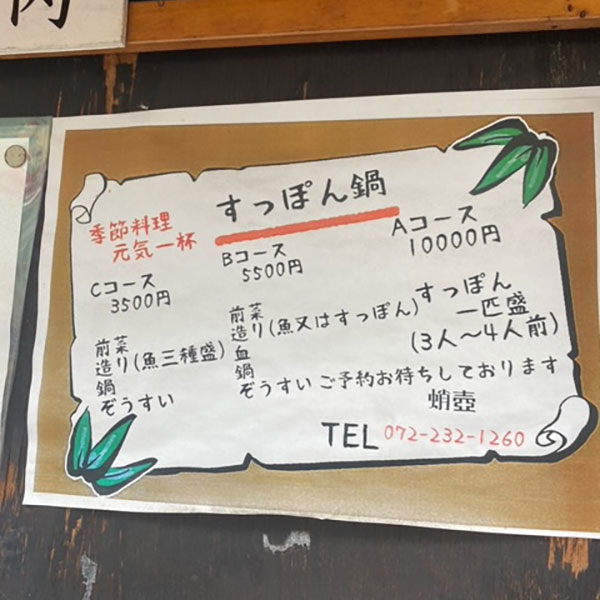 肉
すっぽん鍋
季節料理
元気一杯
Aコース
10000円
すっぽん
一匹盛
(3人〜4人前)
Bコース
5500円
前菜
造り(魚又はすっぽん)
血
鍋
ぞうすい
Cコース
3500円
前菜
造り(魚三種盛)
鍋
ぞうすい
ご予約お待ちしております
蛸壺
TEL 072-232-1260